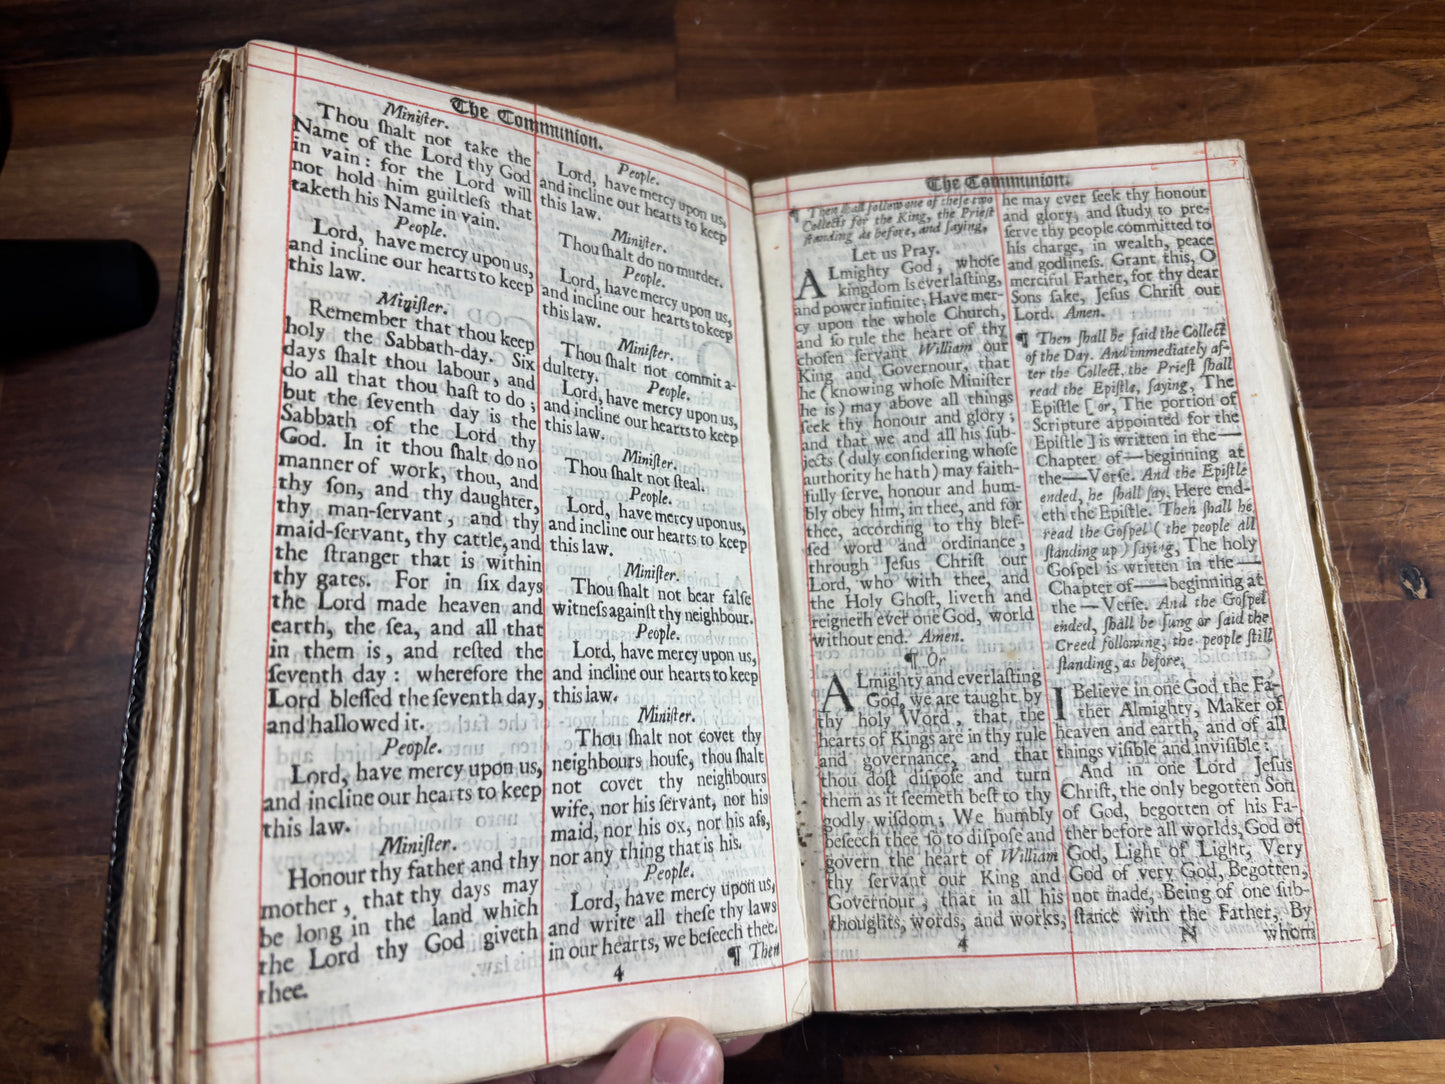 The Communion.
Minister.
Thou ſhalt not take the
Name of the Lord thy God
in vain: for the Lord will
not hold him guiltleſs that
taketh his Name in vain.
People.
Lord, have mercy upon us,
and incline our hearts to keep
this law.
Miniſter.
Remember that thou keep
holy the Sabbath-day. Six
days ſhalt thou labour, and
do all that thou haſt to do;
but the ſeventh day is the
Sabbath of the Lord thy
God. In it thou ſhalt do no
manner of work, thou, and
thy ſon, and thy daughter,
thy man-ſervant, and thy
maid-ſervant, thy cattle, and
the ſtranger that is within
thy gates. For in ſix days
the Lord made heaven and
earth, the ſea, and all that
in them is, and reſted the
ſeventh day: wherefore the
Lord bleſſed the ſeventh day,
and hallowed it.
People.
Lord, have mercy upon us,
and incline our hearts to keep
this law.
Miniſter.
Honour thy father and thy
mother, that thy days may
be long in the land which
the Lord thy God giveth
thee.
People.
Lord, have mercy upon us,
and incline our hearts to keep
this law.
Miniſter.
Thou ſhalt do no murder.
People.
Lord, have mercy upon us,
and incline our hearts to keep
this law.
Miniſter.
Thou ſhalt not commit a-
dultery. People.
Lord, have mercy upon us,
and incline our hearts to keep
this law.
Miniſter.
Thou ſhalt not ſteal.
People.
Lord, have mercy upon us,
and incline our hearts to keep
this law.
Miniſter.
Thou ſhalt not bear falſe
witneſs againſt thy neighbour.
People.
Lord, have mercy upon us,
and incline our hearts to keep
this law.
Miniſter.
Thou ſhalt not covet thy
neighbours houſe, thou ſhalt
not covet thy neighbours
wife, nor his ſervant, nor his
maid, nor his ox, nor his aſs,
nor any thing that is his.
People.
Lord, have mercy upon us,
and write all theſe thy laws
in our hearts, we beſeech thee.
4 ¶ Then
The Communion.
¶ Then ſhall follow one of theſe two
Collects for the King, the Prieſt
ſtanding as before, and ſaying,
Let us Pray.
ALmighty God, whoſe
kingdom is everlaſting,
and power infinite; Have mer-
cy upon the whole Church,
and ſo rule the heart of thy
choſen ſervant William our
King and Governour, that
he (knowing whoſe Miniſter
he is) may above all things
ſeek thy honour and glory;
and that we and all his ſub-
jects (duly conſidering whoſe
authority he hath) may faith-
fully ſerve, honour and hum-
bly obey him, in thee, and for
thee, according to thy bleſ-
ſed word and ordinance,
through Jeſus Chriſt our
Lord, who with thee, and
the Holy Ghoſt, liveth and
reigneth ever one God, world
without end. Amen.
¶ Or
ALmighty and everlaſting
God, we are taught by
thy holy Word, that the
hearts of Kings are in thy rule
and governance, and that
thou doſt diſpoſe and turn
them as it ſeemeth beſt to thy
godly wiſdom; We humbly
beſeech thee ſo to diſpoſe and
govern the heart of William
thy ſervant our King and
Governour, that in all his
thoughts, words, and works,
4
he may ever ſeek thy honour
and glory, and ſtudy to pre-
ſerve thy people committed to
his charge, in wealth, peace
and godlineſs. Grant this, O
merciful Father, for thy dear
Sons ſake, Jeſus Chriſt our
Lord. Amen.
¶ Then ſhall be ſaid the Collect
of the Day. And immediately af-
ter the Collect, the Prieſt ſhall
read the Epiſtle, ſaying, The
Epiſtle [or, The portion of
Scripture appointed for the
Epiſtle] is written in the—
Chapter of—beginning at
the—Verſe. And the Epiſtle
ended, he ſhall ſay, Here end-
eth the Epiſtle. Then ſhall he
read the Goſpel (the people all
ſtanding up) ſaying, The holy
Goſpel is written in the—
Chapter of—beginning at
the—Verſe. And the Goſpel
ended, ſhall be ſung or ſaid the
Creed following, the people ſtill
ſtanding, as before,
I Believe in one God the Fa-
ther Almighty, Maker of
heaven and earth, and of all
things viſible and inviſible:
And in one Lord Jeſus
Chriſt, the only begotten Son
of God, begotten of his Fa-
ther before all worlds, God of
God, Light of Light, Very
God of very God, Begotten,
not made, Being of one ſub-
ſtance with the Father, By
N whom